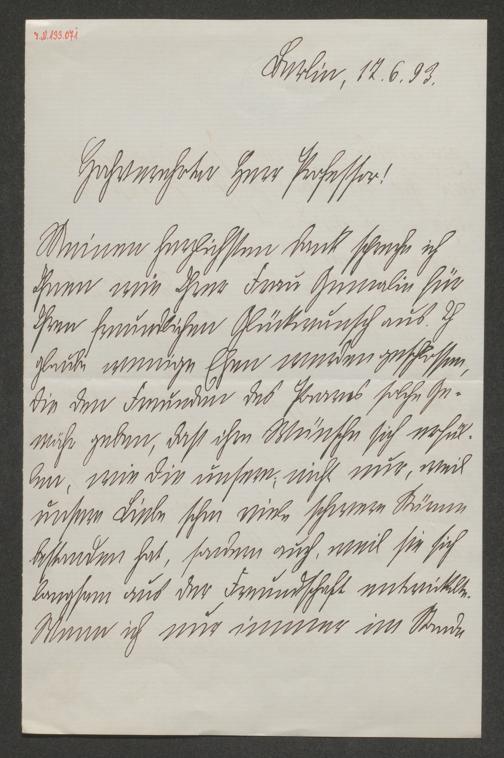 r.N.133.071
Berlin, 12.6.93.
Hochverehrter Herr Professor!
Meinen herzlichsten Dank spreche ich
Ihnen wie Ihrer Frau Gemalin für
Ihren freundlichen Glückwunsch aus. Ich
glaube wenige Ehen werden geschlossen,
die den Freunden des Paares solche Ge-
währ geben, dass ihre Wünsche sich erfül-
len, wie die unsere; nicht nur, weil
unsere Liebe schon viele schwere Stürme
bestanden hat, sondern auch, weil sie sich
langsam aus der Freundschaft entwickelte.
Wenn ich nur immer im Stande